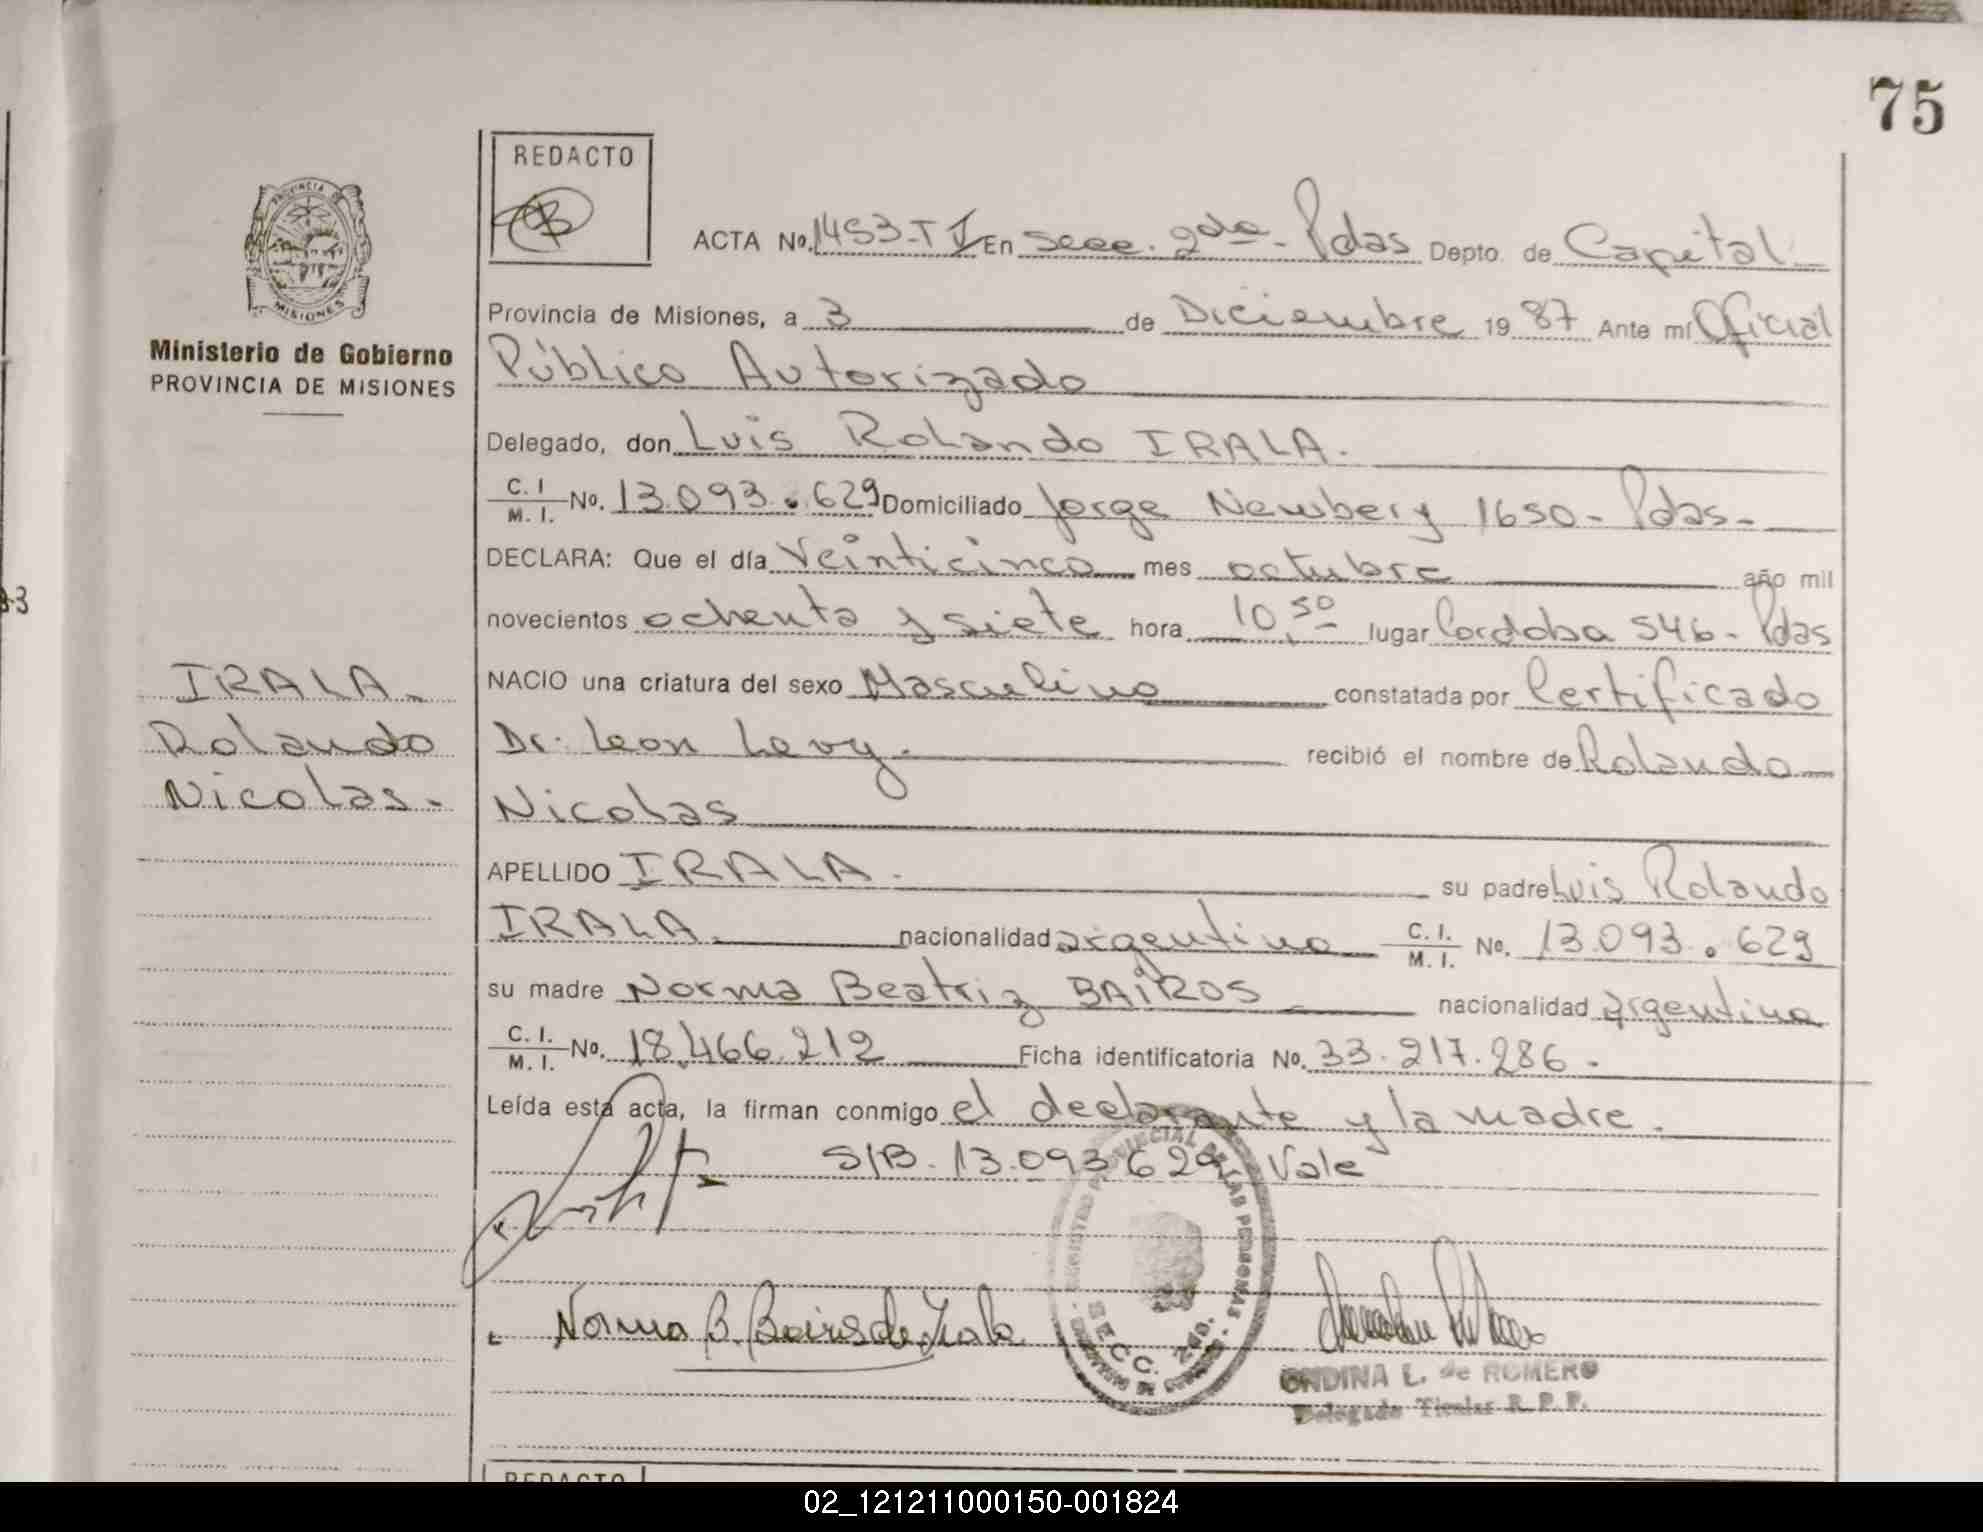 75
REDACTO
ACTA No. 1453-T V En Secc. 2da - Pdas Depto. de Capital
Provincia de Misiones, a 3 de Diciembre 19 87 Ante mí Oficial
Ministerio de Gobierno
PROVINCIA DE MISIONES
Público Autorizado
Delegado, don Luis Rolando IRALA.
C. I. / M. I. No. 13.093.629 Domiciliado Jorge Newbery 1650 - Pdas -
DECLARA: Que el día Veinticinco mes octubre año mil
novecientos ochenta y siete hora 10,50 lugar Cordoba 546 - Pdas
NACIO una criatura del sexo Masculino constatada por Certificado
Dr. Leon Levy. recibió el nombre de Rolando
Nicolas
IRALA.
Rolando
Nicolas.
APELLIDO IRALA. su padre Luis Rolando
IRALA. nacionalidad argentina C. I. / M. I. No. 13.093.629
su madre Norma Beatriz BAIROS nacionalidad argentina
C. I. / M. I. No. 18.466.212 Ficha identificatoria No. 33.217.286.
Leída esta acta, la firman conmigo el declarante y la madre.
S/B. 13.093.629 Vale
Norma B. Bairos de Irala
SECC. 2da.
ONDINA L. de ROMERO
Delegada Titular R. P. P.
REDACTO
02_121211000150-001824